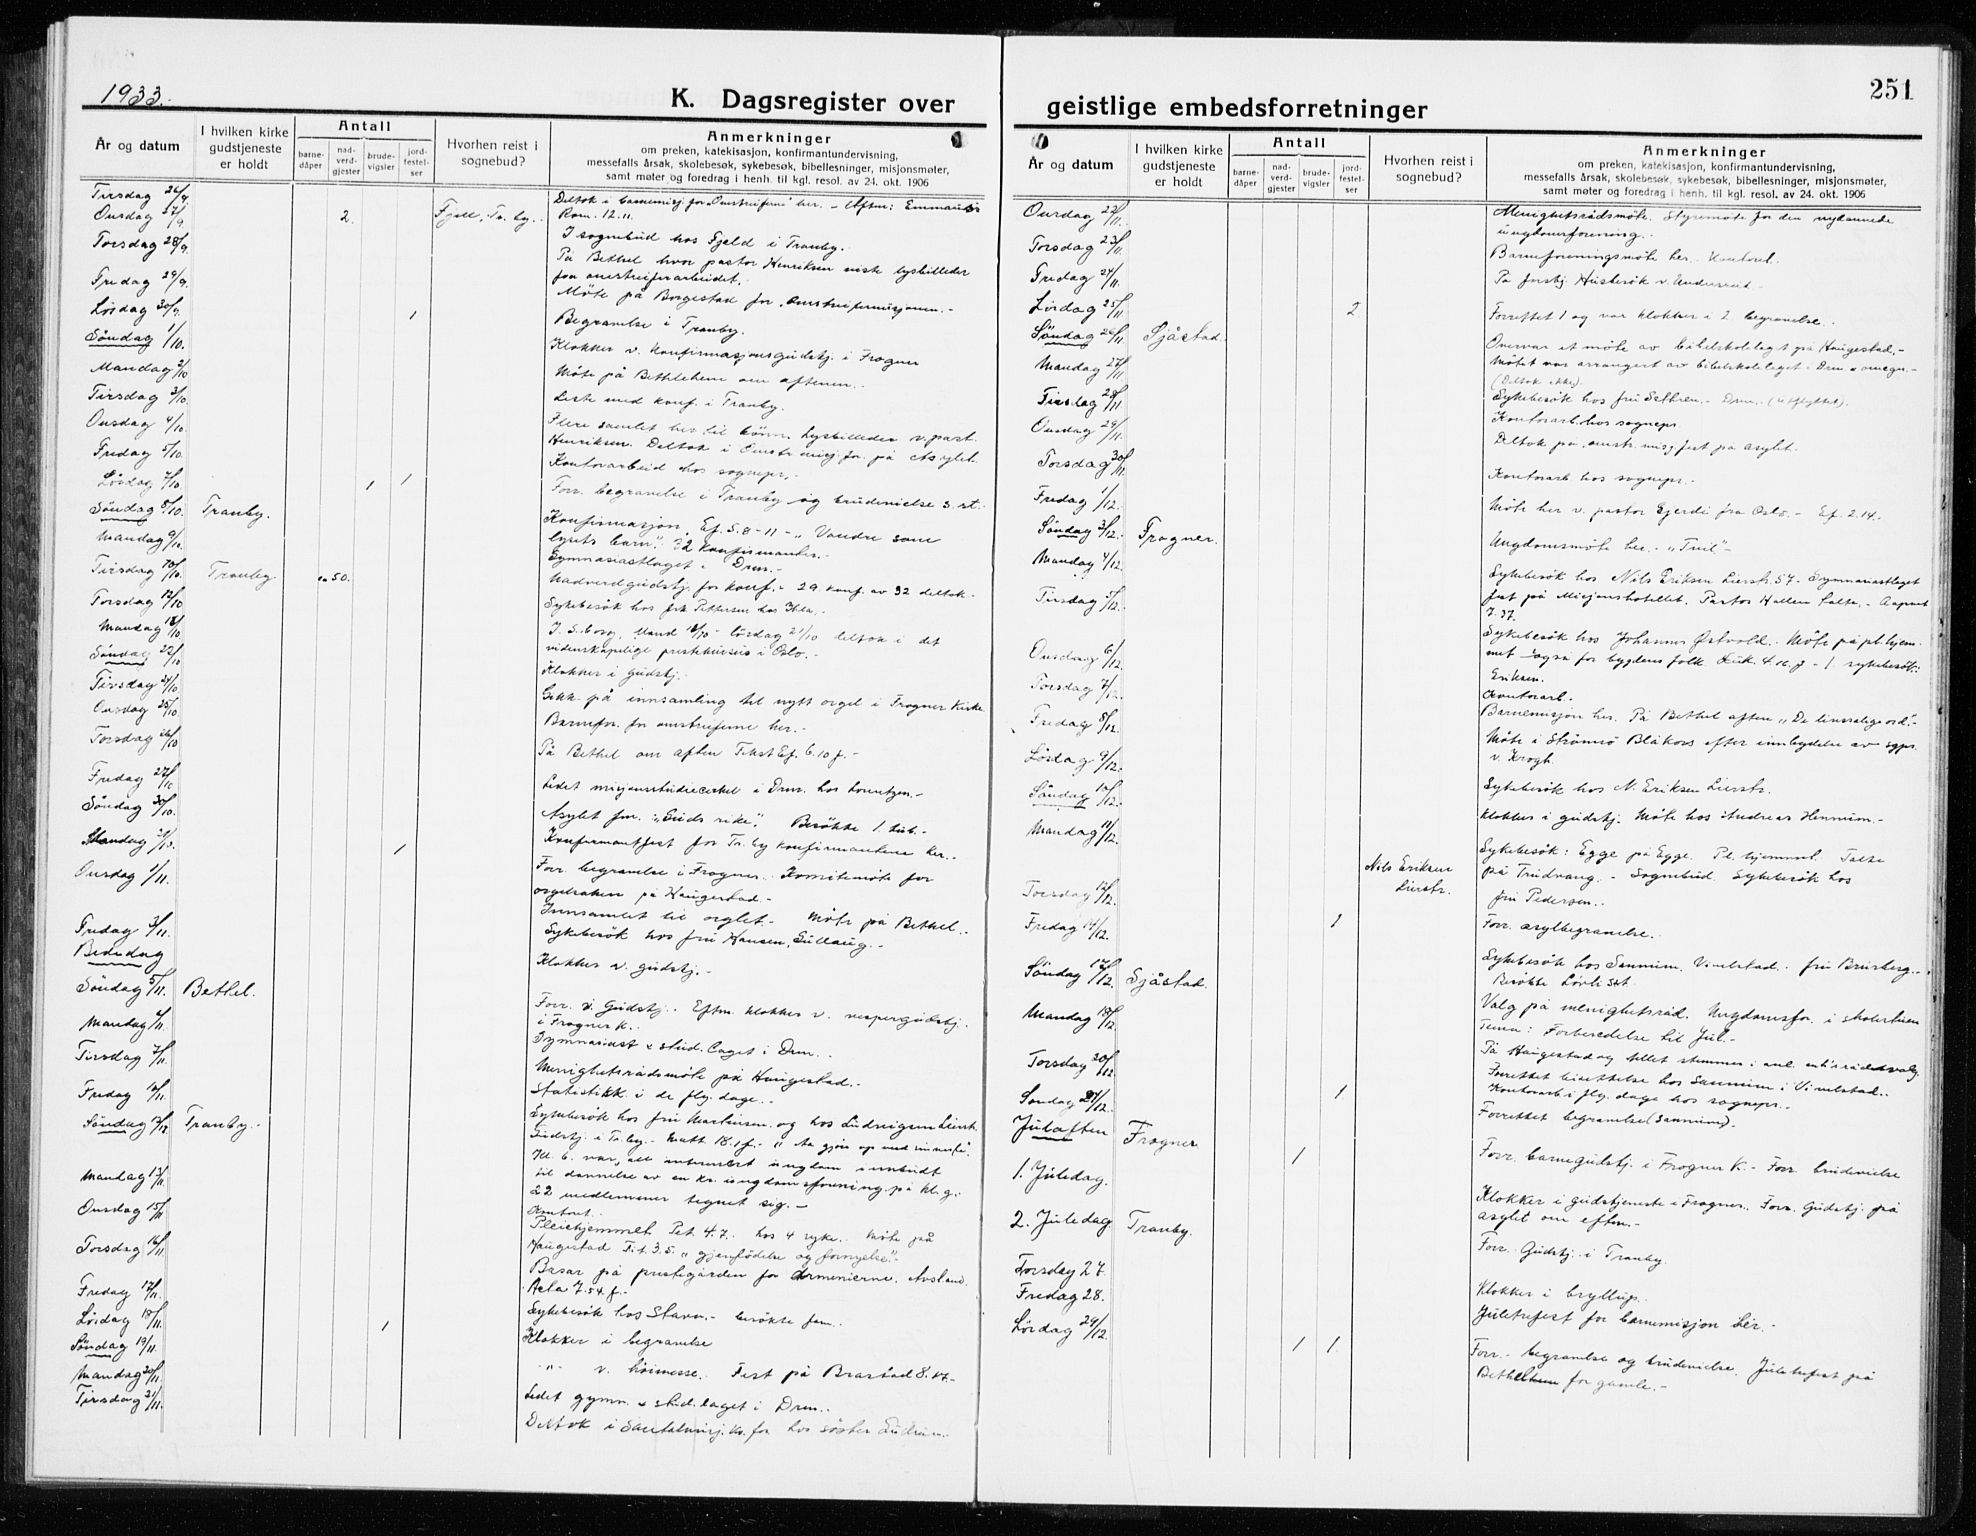 1933.
K. Dagsregister over
År og datum
I hvilken kirke
gudstjeneste
er holdt
Antall
barne-
dåper
nad-
verd-
gjester
brude-
vigsler
jord-
festel-
ser
Hvorhen reist i
sognebud?
Anmerkninger
om preken, katekisasjon, konfirmantundervisning,
messefalls årsak, skolebesøk, sykebesøk, bibellesninger, misjonsmøter,
samt møter og foredrag i henh. til kgl. resol. av 24. okt. 1906
Tirsdag 26/9
Onsdag 27/9 2. Fjeld, Tr. by.
Rom. 12.11.
Torsdag 28/9. I sognebud hos Fjeld i Tranby.
På Bethel hvor pastor Henriksen viste lysbilleder
Fredag 29/9. fra omstreiferarbeidet.
Møte på Borgestad for Omstreifermisjonen.-
Lørdag 30/9. 1 Begravelse i Tranby.
Søndag 1/10. Klokker v. konfirmasjonsgudstj. i Frogner
Mandag 2/10 Møte på Bethlehem om aftenen.
Tirsdag 3/10. Leste med konf. i Tranby.
Onsdag 4/10 Flere samlet her til lysbilleder v. past.
Henriksen. Deltok i Omstr. misj. for. på Asylet.
Fredag 5/10. Kontorarbeid hos sognepr.
Lørdag 7/10. 1 1 Forr. begravelse i Tranby og brudevielse s. st.
Søndag 8/10. Tranby. Konfirmasjon. Ef. 5. 8-11 - „Vandre som
lysets barn". 32 konfirmanter.-
Mandag 9/10. Gymnasiastlaget i Drm.-
Tirsdag 10/10. Tranby. 50. Nadverdgudstj. for konf.- 29 konf. av 32 deltok.
Torsdag 12/10 Sykebesøk hos frk Pettersen
Mandag 18/10. lørdag 21/10 deltok i det
videnskapelige prestekursus i Oslo.-
Søndag 22/10 Klokker i gudstj.
Tirsdag 24/10. Gikk på innsamling til nytt orgel i Frogner Kirke
Onsdag 25/10 Barnefor. for omstreiferne her.-
Torsdag 26/10 På Bethel om aften Tekst Ef. 6.10 f.-
Fredag 27/10 Ledet misjonsstudiecirkel i Drm. hos Lorentzen.-
Søndag 30/10. Asylet fm. „Guds rike". Besøkte
Mandag 31/10. 1 Konfirmantfest for Tr. by konfirmantene her.-
Onsdag 1/11. Forr. begravelse i Frogner. Komitemøte for
orgelsaken på Haugestad.-
Innsamlet til orglet.- Møte på Bethel.-
Fredag 3/11. Sykebesøk hos fru Hansen, Gullaug.-
Bededag Klokker v. gudstj.-
Søndag 5/11. Bethel. Forr. v. Gudstj. Eftm. klokker v. vespergudstj.
i Frogner k.
Mandag 6/11. Gymnasiast & stud. laget i Drm.
Tirsdag 7/11. Menighetsrådsmøte på Haugestad.-
Fredag 10/11. Statistikk i de flg. dage.-
Sykebesøk hos fru Markussen og hos
Søndag 12/12 Tranby.- Gudstj. i Tr. by.- Matt 18.1 f.-
Kl. 6. var alle interessert ungdom innbudt
Mandag 13/11. til dannelse av en kr. ungdomsforening på
22 medlemmer tegnet sig.-
Onsdag 15/11 Kontort.
Pleiehjemmet Pet. 4.7. hos 4 syke. Møte på
Torsdag 16/11. Haugestad Tit. 3.5. „gjenfødelse og fornyelse".-
Basar på prestegården for Armenierne. Avsland.
Fredag 17/11. Acta 7.54 f.-
Lørdag 18/11. 1 Sykebesøk hos Stavn.- besøkte fam.
Søndag 19/11. Klokker i begravelse
Mandag 20/11. -"- v. høimesse. Fest på Brastad 8. kl.-
Tirsdag 21/11. Ledet gymn. & stud. laget i Drm.
Deltok i Santalmisj. kv. for hos søster Gudrun.
251
geistlige embedsforretninger
År og datum
I hvilken kirke
gudstjeneste
er holdt
Antall
barne-
dåper
nad-
verd-
gjester
brude-
vigsler
jord-
festel-
ser
Hvorhen reist i
sognebud?
Anmerkninger
om preken, katekisasjon, konfirmantundervisning,
messefalls årsak, skolebesøk, sykebesøk, bibellesninger, misjonsmøter,
samt møter og foredrag i henh. til kgl. resol. av 24. okt. 1906
Onsdag 22/11. Menighetsrådsmøte. Styremøte for den nydannede
ungdomsforening.
Torsdag 23/11. Barneforeningsmøte her. Kontort.
Fredag 24/11. På Husbesøk v.
Lørdag 25/11 2 Forrettet 1 og var klokker i 2 begravelse.
Søndag 26/11. Sjåstad. Overvar et møte av bibelskolelaget på Haugestad.-
Mandag 27/11 Møtet var arrangert av bibelskolelaget i Drm. & omegn.-
(Deltok ikke).
Tirsdag 28/11. Sykebesøk hos fru Sethren.- Drm. (utflyttet).
Onsdag 29/11. Kontorarb. hos sognepr.
Deltok på omstr. misj. fest på asylet.
Torsdag 30/11. Kontorarb hos sognepr.
Fredag 1/12. Møte her v. pastor Gjerdi fra Oslo.- Ef. 2.14.
Søndag 3/12. Frogner. Ungdomsmøte her.- „Tvil"-
Mandag 4/12. Sykebesøk hos Nils Eriksen Lierstr. 57.- Gymnasiastlaget
Tirsdag 5/12. fest på Misjonshotellet. Pastor Hallen talte.-
7.37.
Sykebesøk hos Johannes Østvold. Møte på pl. hjem-
Onsdag 6/12. met også for bygdens folk Luk. 4.16. f - 1. sykebesøk:
Eriksen.
Torsdag 7/12. Kontorarb.
Fredag 8/12. Barnemisjon her. På Bethel aften „De ord".-
Møte i Strømsø Blåkors efter innbydelse av sgpr.
Lørdag 9/12. v. Krogh.
Søndag 10/12. Sykebesøk hos N. Eriksen Lierstr.
Mandag 11/12. Klokker i gudstj. Møte hos Andreas Hennum.-
Nils Eriksen
Lierstr.
Sykebesøk: Egge på Egge. Pl. hjemmet. Talte
Torsdag 12/12. på Trudvang.- Sognebud. Sykebesøk hos
fru Pedersen.
Fredag 14/12. 1 Forr. asylbegravelse.
Søndag 17/12. Sjåstad. Sykebesøk hos Sannum. Vivelstad.
Besøkte Lørli
Mandag 18/12. Valg på menighetsråd. Ungdomsfor. i skolestuen
Tema: Forberedelse til Jul.-
Torsdag 20/12 På Haugestad og tillet stemmer i anl.
Forrettet bisettelse hos Sannum i Vivelstad.
Søndag 21/12. 1 Kontorarb i flg. dage hos sognepr.-
Forrettet begravelse (Sannum).
Juleaften Frogner 1 Forr. barnegudstj. i Frogner K.- Forr. brudevielse
1. Juledag. Klokker i gudstjeneste i Frogner. Forr. Gudstj. på
asylet om eftm.-
2. Juledag Tranby. Forr. Gudstj. i Tranby.
Torsdag 27.
Fredag 28. Klokker i bryllup.
Lørdag 29/12. 1 1. Juletrefest for barnemisjon her.-
Forr.- begravelse og brudevielse. Juletrefest på
Bethlehem for gamle.-